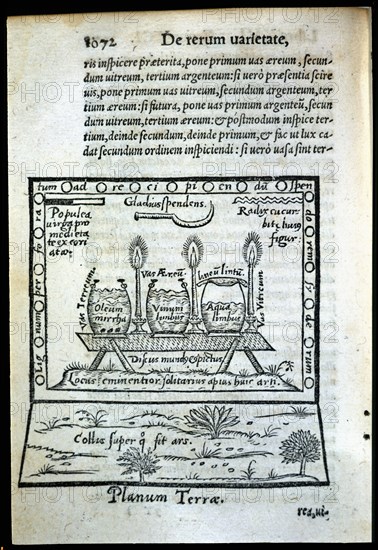 1072 De rerum uarietate,
ris inspicere præterita, pone primum uas æreum, secun
dum uitreum, tertium argenteum: si uerò præsentia scire
uis, pone primum uas uitreum, secundum argenteum, ter
tium æreum: si futura, pone uas primum argenteũ, secun
dum uitreum, tertium æreum: & postmodum inspice ter-
tium, deinde secundum, deinde primum, & fac ut lux ca
dat secundum ordinem inspiciendi: si uerò uasa sint ter-
tum ad re ci pi en dũ Spen
Gladius spendens.
Populea
uirga pro
medietate
te excori
ata
Radix cucur
bitę huius
figuræ
Lig num per fo ra
da rem si de rum
Vas Terreum
Vas Æreũ
lineũ lintũ
Vas Vitreum
Oleum
mirrha
Vinum
limbus
Aqua
limbus
Discus mundꝰ & pictus
Locus eminentior solitarius aptus huic arti
Collis super q̃ fit ars.
Planum Terræ.